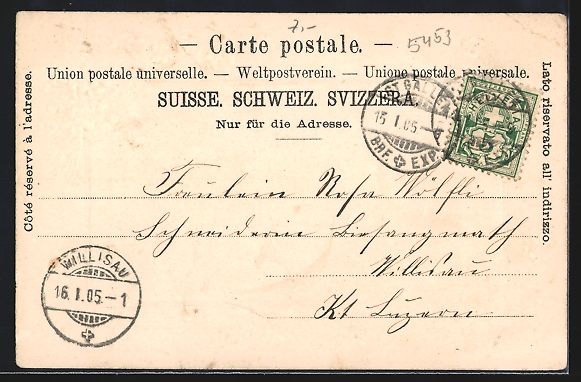 7,-
5453
— Carte postale. —
Union postale universelle. — Weltpostverein. — Unione postale universale.
SUISSE. SCHWEIZ. SVIZZERA.
Nur für die Adresse.
Côté réservé à l'adresse.
Lato riservato all' indirizzo.
ST. GALLEN
15. I. 05. - 6
BRF. EXP.
Fräulein Rosa Wölfli
Schneiderin Biefangmath
Willisau
Kt Luzern
WILLISAU
16. I. 05. - 1